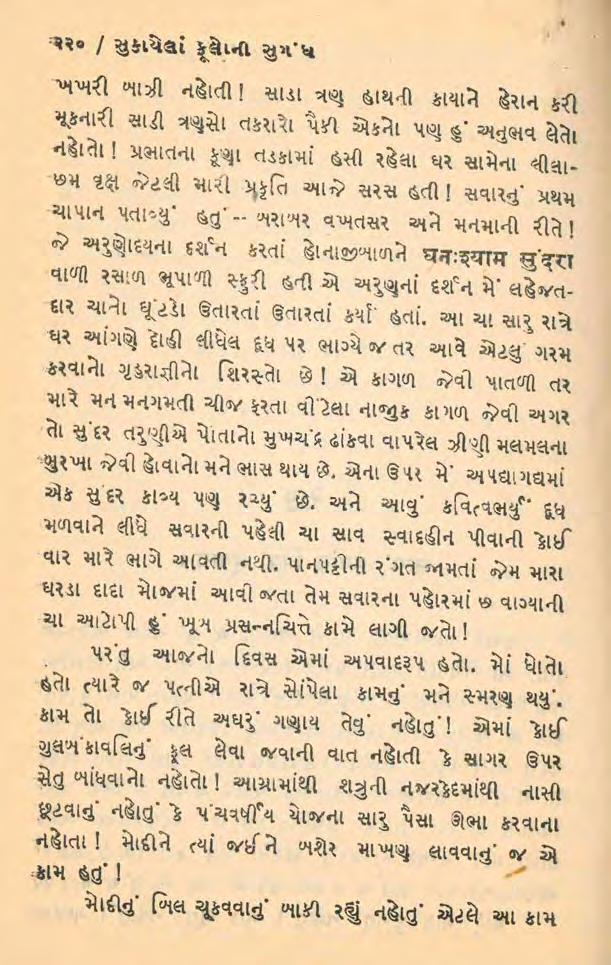 ૨૨૦ / સુકાયેલાં ફૂલોની સુગંધ
ખખરી બાઝી નહોતી! સાડા ત્રણ હાથની કાયાને હેરાન કરી
મૂકનારી સાડી ત્રણસો તકરારો પૈકી એકનો પણ હું અનુભવ લેતો
નહોતો! પ્રભાતના કૂણા તડકામાં હસી રહેલા ઘર સામેના લીલા-
છમ વૃક્ષ જેટલી મારી પ્રકૃતિ આજે સરસ હતી! સવારનું પ્રથમ
ચાપાન પતાવ્યું હતું -- બરાબર વખતસર અને મનમાની રીતે!
જે અરુણોદયના દર્શન કરતાં હોનાજીબાળને घनःश्याम सुंदरा
વાળી રસાળ ભૂપાળી સ્ફુરી હતી એ અરુણનાં દર્શન મેં લહેજત-
દાર ચાનો ઘૂંટડો ઉતારતાં ઉતારતાં કર્યાં હતાં. આ ચા સારુ રાત્રે
ઘર આંગણે દોહી લીધેલ દૂધ પર ભાગ્યે જ તર આવે એટલું ગરમ
કરવાનો ગૃહરાજ્ઞીનો શિરસ્તો છે! એ કાગળ જેવી પાતળી તર
મારે મન મનગમતી ચીજ ફરતા વીંટેલા નાજુક કાગળ જેવી અગર
તો સુંદર તરુણીએ પોતાનો મુખચંદ્ર ઢાંકવા વાપરેલ ઝીણી મલમલના
બુરખા જેવી હોવાનો મને ભાસ થાય છે. એના ઉપર મેં અપદ્યાગદ્યમાં
એક સુંદર કાવ્ય પણ રચ્યું છે. અને આવું કવિત્વભર્યું દૂધ
મળવાને લીધે સવારની પહેલી ચા સાવ સ્વાદહીન પીવાની કોઈ
વાર મારે ભાગે આવતી નથી. પાનપટ્ટીની રંગત જામતાં જેમ મારા
ઘરડા દાદા મોજમાં આવી જતા તેમ સવારના પહોરમાં છ વાગ્યાની
ચા આટોપી હું ખૂબ પ્રસન્નચિત્તે કામે લાગી જતો!
પરંતુ આજનો દિવસ એમાં અપવાદરૂપ હતો. મોં ધોતો
હતો ત્યારે જ પત્નીએ રાત્રે સોંપેલા કામનું મને સ્મરણ થયું.
કામ તો કોઈ રીતે અઘરું ગણાય તેવું નહોતું! એમાં કોઈ
ગુલબંકાવલિનું ફૂલ લેવા જવાની વાત નહોતી કે સાગર ઉપર
સેતુ બાંધવાનો નહોતો! આગ્રામાંથી શત્રુની નજરકેદમાંથી નાસી
છૂટવાનું નહોતું કે પંચવર્ષીય યોજના સારુ પૈસા ઊભા કરવાના
નહોતા! મોદીને ત્યાં જઈને બશેર માખણ લાવવાનું જ એ
કામ હતું!
મોદીનું બિલ ચૂકવવાનું બાકી રહ્યું નહોતું એટલે આ કામ